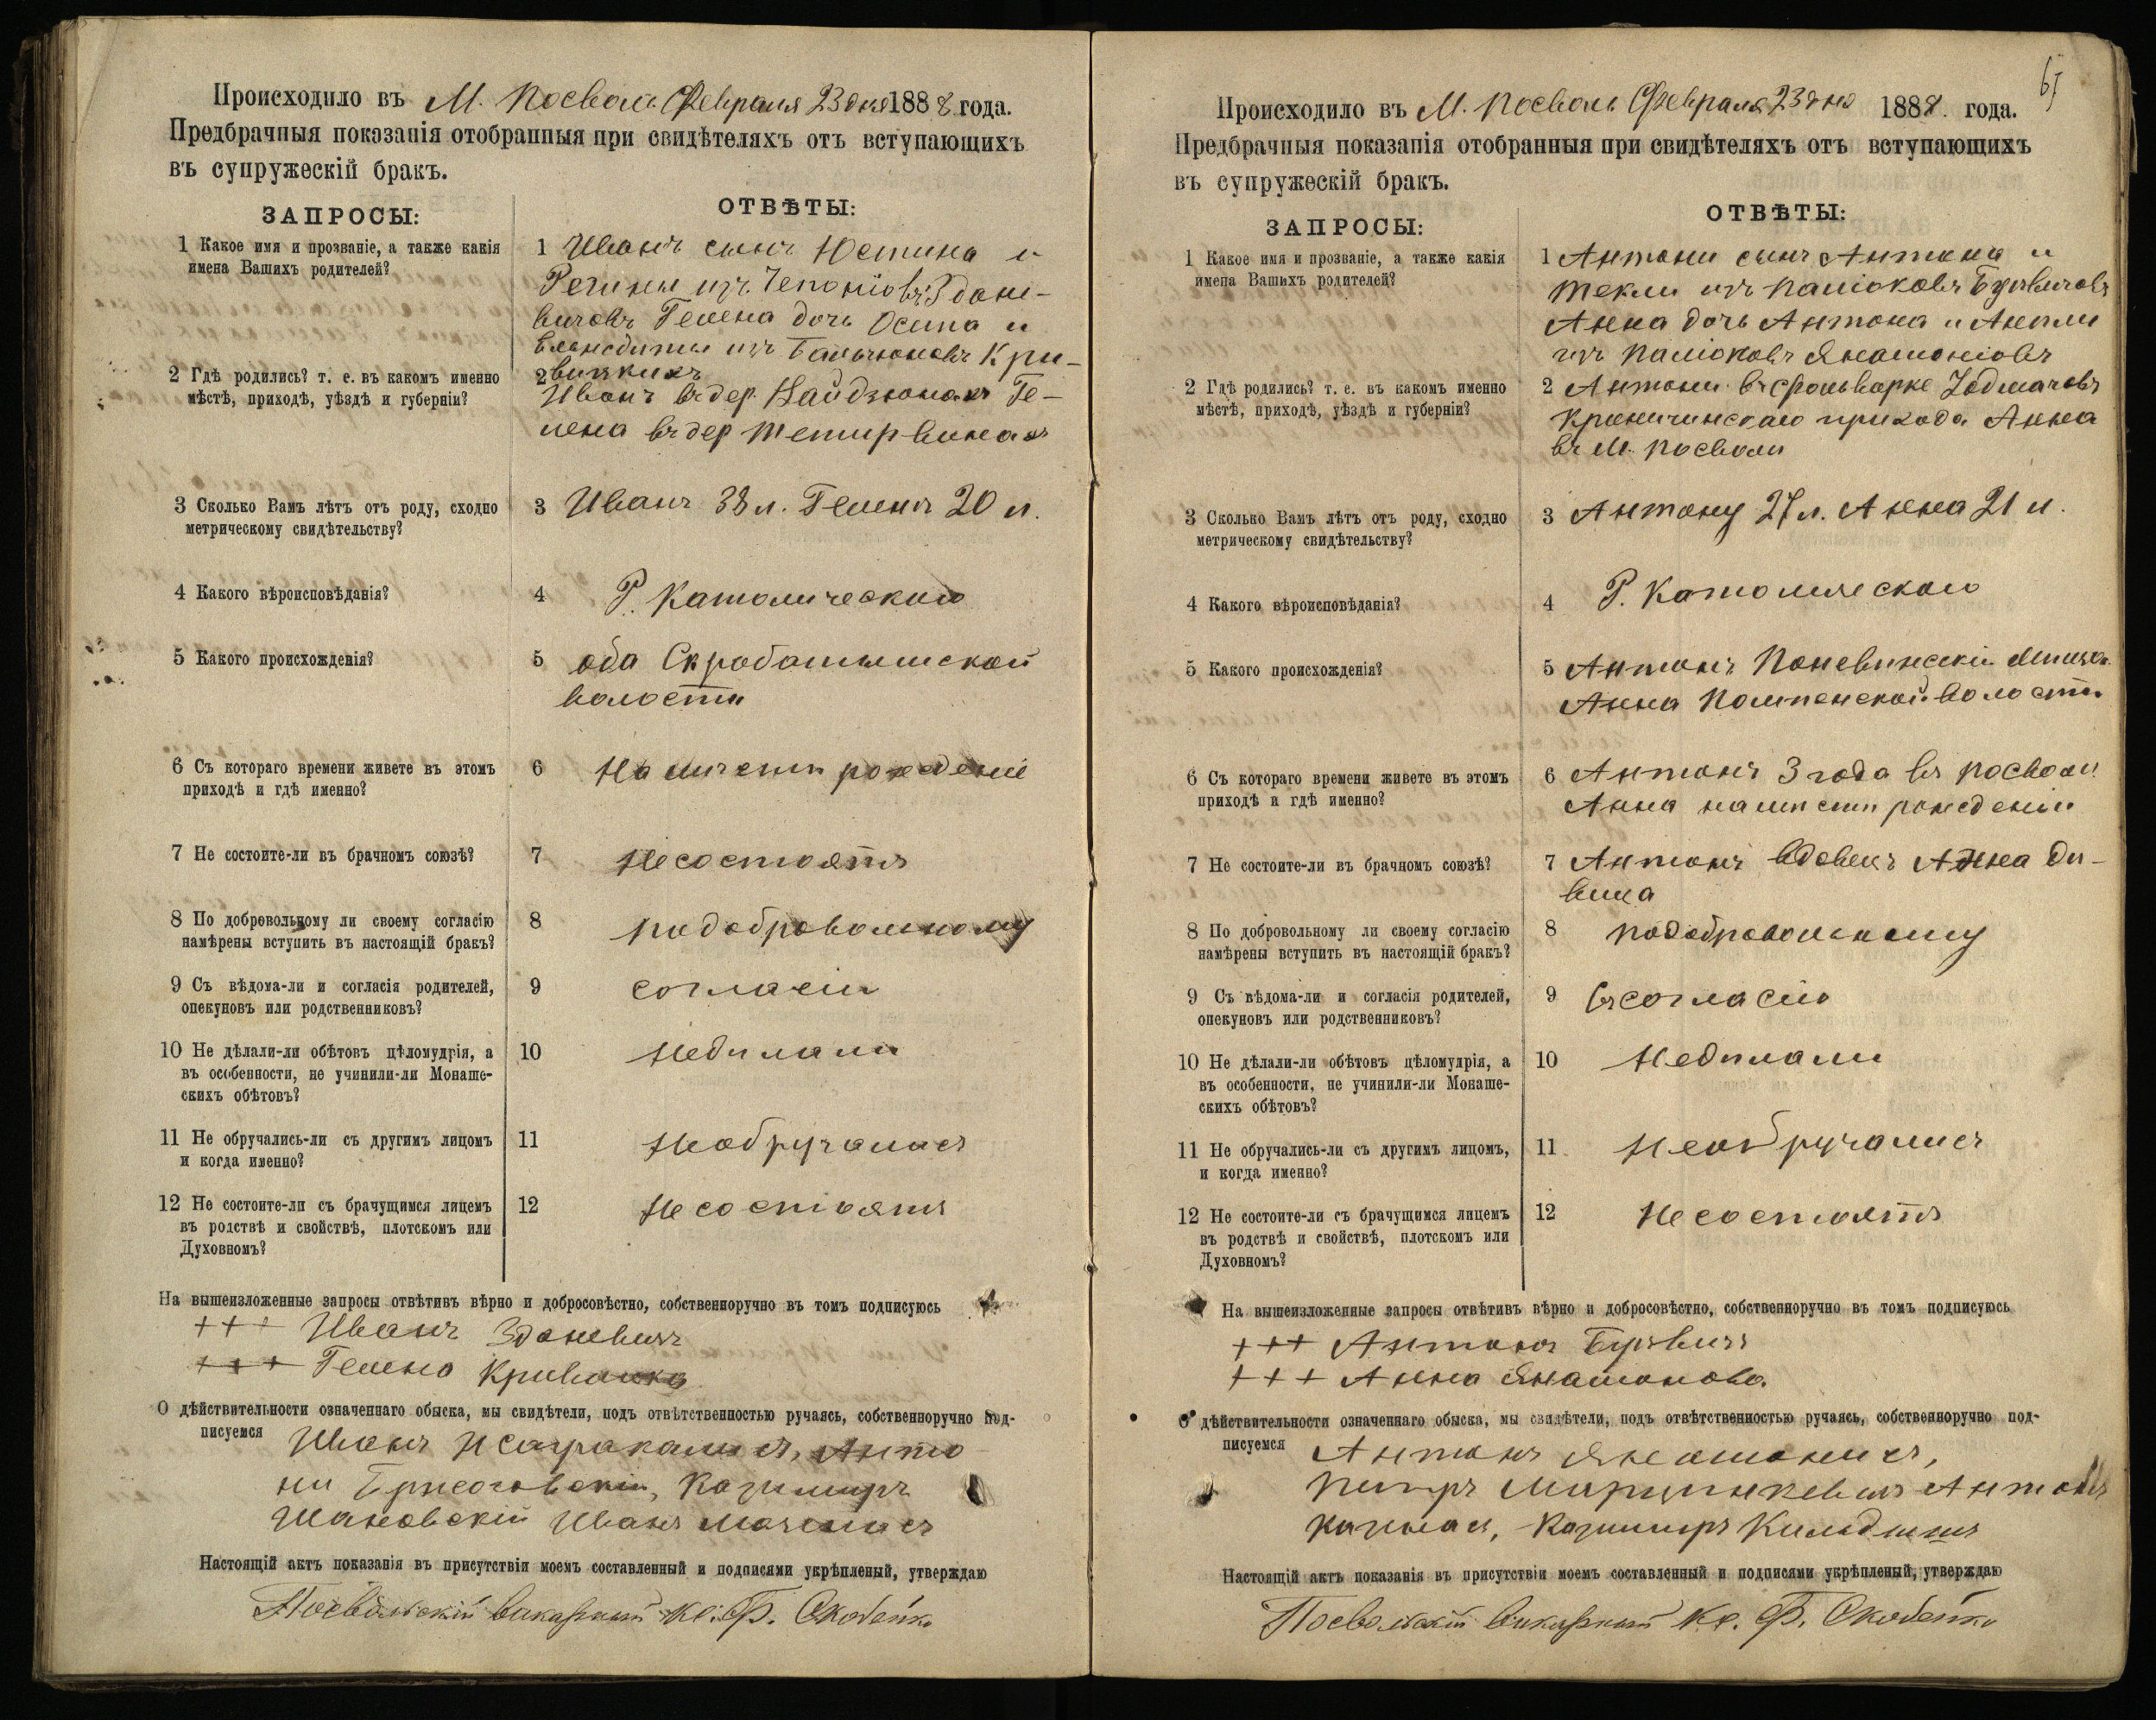 Происходило въ М. Посволь Февраля 23 дня 1888 года.
Предбрачныя показанія отобранныя при свидѣтеляхъ отъ вступающихъ
въ супружескій бракъ.
ЗАПРОСЫ:
ОТВѢТЫ:
1 Какое имя и прозваніе, а также какія
имена Вашихъ родителей?
1 Иванъ сынъ Юстина и
Регины изъ Чепонiовъ Здане-
вичовъ Гелена дочь Осипа и
изъ Бальчюновъ Кри-
2 Гдѣ родились? т. е. въ какомъ именно
мѣстѣ, приходѣ, уѣздѣ и губерніи?
2
Иванъ въ дер. Ге-
лена въ дер Тетирвинахъ
3 Сколько Вамъ лѣтъ отъ роду, сходно
метрическому свидѣтельству?
3 Иванъ 38 л. Гелена 20 л.
4 Какого вѣроисповѣданія?
4 Р. Католическаго
5 Какого происхожденія?
5 оба Скробатышской
волости
6 Съ котораго времени живете въ этомъ
приходѣ и гдѣ именно?
6 На мистти рожденiе
7 Не состоите-ли въ брачномъ союзѣ?
7 Несостоятъ
8 По добровольному ли своему согласію
намѣрены вступить въ настоящій бракъ?
8 подобровольному
9 Съ вѣдома-ли и согласія родителей,
опекуновъ или родственниковъ?
9 согласiи
10 Не дѣлали-ли обѣтовъ цѣломудрія, а
въ особенности, не учинили-ли Монаше-
скихъ обѣтовъ?
10 Недилали
11 Не обручались-ли съ другимъ лицомъ
и когда именно?
11 Необручались
12 Не состоите-ли съ брачущимся лицемъ
въ родствѣ и свойствѣ, плотскомъ или
Духовномъ?
12 Несостоятъ
На вышеизложенные запросы отвѣтивъ вѣрно и добросовѣстно, собственноручно въ томъ подписуюсь
+++ Иванъ Зданевичъ
+++ Гелена
О дѣйствительности означеннаго обыска, мы свидѣтели, подъ отвѣтственностью ручаясь, собственноручно под-
писуемся Иванъ Анто
ни Казимиръ
Шановскій Иванъ
Настоящій актъ показанія въ присутствіи моемъ составленный и подписями укрѣпленый, утверждаю
Посвольскій викарный кс. Ф. Скобейко
65
Происходило въ М. Посволь Февраля 23 дня 1888. года.
Предбрачныя показанія отобранныя при свидѣтеляхъ отъ вступающихъ
въ супружескій бракъ.
ЗАПРОСЫ:
ОТВѢТЫ:
1 Какое имя и прозваніе, а также какія
имена Вашихъ родителей?
1 Антони сынъ Антона и
Текли изъ Палiоковъ
Анна дочь Антона и Анели
изъ Палiоковъ
2 Гдѣ родились? т. е. въ какомъ именно
мѣстѣ, приходѣ, уѣздѣ и губерніи?
2 Антони въ Фольварке
Криничинскаго прихода Анна
въ М. Посволи
3 Сколько Вамъ лѣтъ отъ роду, сходно
метрическому свидѣтельству?
3 Антону 27 л. Анна 21 л.
4 Какого вѣроисповѣданія?
4 Р. Католическаго
5 Какого происхожденія?
5 Антонъ Поневижскiи
Анна Помпенской волости
6 Съ котораго времени живете въ этомъ
приходѣ и гдѣ именно?
6 Антонъ 3 года въ Посволи
Анна на мисти рожденiи
7 Не состоите-ли въ брачномъ союзѣ?
7 Антонъ вдовецъ Анна ди-
вица
8 По добровольному ли своему согласію
намѣрены вступить въ настоящій бракъ?
8 подобровольному
9 Съ вѣдома-ли и согласія родителей,
опекуновъ или родственниковъ?
9 въсогласiю
10 Не дѣлали-ли обѣтовъ цѣломудрія, а
въ особенности, не учинили-ли Монаше-
скихъ обѣтовъ?
10 Недилали
11 Не обручались-ли съ другимъ лицомъ,
и когда именно?
11 Необручались
12 Не состоите-ли съ брачущимся лицемъ
въ родствѣ и свойствѣ, плотскомъ или
Духовномъ?
12 Несостоятъ
На вышеизложенные запросы отвѣтивъ вѣрно и добросовѣстно, собственноручно въ томъ подписуюсь
+++ Антонъ
+++ Анна
О дѣйствительности означеннаго обыска, мы свидѣтели, подъ отвѣтственностью ручаясь, собственноручно под-
писуемся Антонъ
Питръ Антонъ
Казимиръ
Настоящій актъ показанія въ присутствіи моемъ составленный и подписями укрѣпленый, утверждаю
Посвольскій викарный кс. Ф. Скобейко